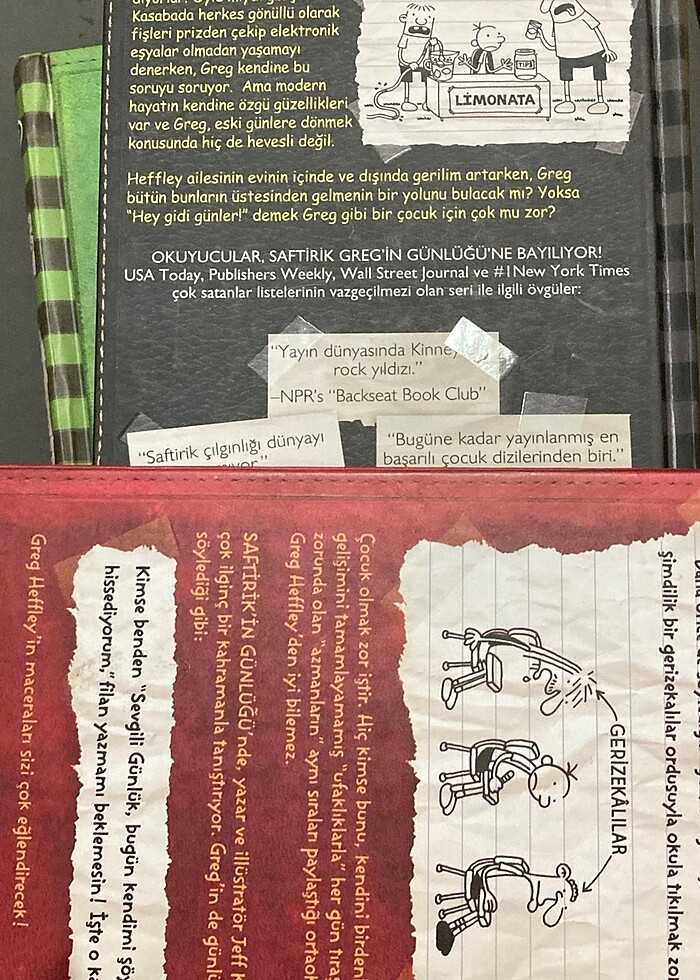 Kasabada herkes gönüllü olarak
fişleri prizden çekip elektronik
eşyalar olmadan yaşamayı
denerken, Greg kendine bu
soruyu soruyor. Ama modern
hayatın kendine özgü güzellikleri
var ve Greg, eski günlere dönmek
konusunda hiç de hevesli değil.
TIPS
LİMONATA
Heffley ailesinin evinin içinde ve dışında gerilim artarken, Greg
bütün bunların üstesinden gelmenin bir yolunu bulacak mı? Yoksa
"Hey gidi günler!" demek Greg gibi bir çocuk için çok mu zor?
OKUYUCULAR, SAFTİRİK GREG'İN GÜNLÜĞÜ'NE BAYILIYOR!
USA Today, Publishers Weekly, Wall Street Journal ve #1 New York Times
çok satanlar listelerinin vazgeçilmezi olan seri ile ilgili övgüler:
"Yayın dünyasında Kinney
rock yıldızı."
–NPR's "Backseat Book Club"
"Saftirik çılgınlığı dünyayı
"Bugüne kadar yayınlanmış en
başarılı çocuk dizilerinden biri."
şimdilik bir gerizekalılar ordusuyla okula tıkılmak
GERİZEKÂLILAR
Çocuk olmak zor iştir. Hiç kimse bunu, kendini birden
gelişimini tamamlayamamış "ufaklıklarla" her gün
zorunda olan "azmanların" aynı sıraları paylaştığı
Greg Heffley'den iyi bilemez.
SAFTİRİK'İN GÜNLÜĞÜ'nde, yazar ve illüstratör Jeff
çok ilginç bir kahramanla tanıştırıyor. Greg'in de
söylediği gibi:
Kimse benden "Sevgili Günlük, bugün kendimi
hissediyorum," filan yazmamı beklemesin! İşte o
Greg Heffley'in maceraları sizi çok eğlendirecek!